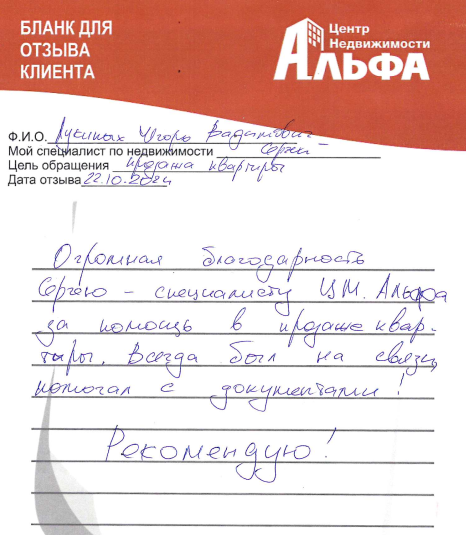 БЛАНК ДЛЯ
ОТЗЫВА
КЛИЕНТА
Центр
Недвижимости
АЛЬФА
Ф.И.О. Лукиных Игорь Вадимович
Мой специалист по недвижимости Сергей
Цель обращения продажа квартиры
Дата отзыва 22.10.2024
Огромная благодарность
Сергею – специалисту Ц.Н. Альфа
за помощь в продаже квар-
тиры. Всегда был на связи,
помогал с документами!
Рекомендую!